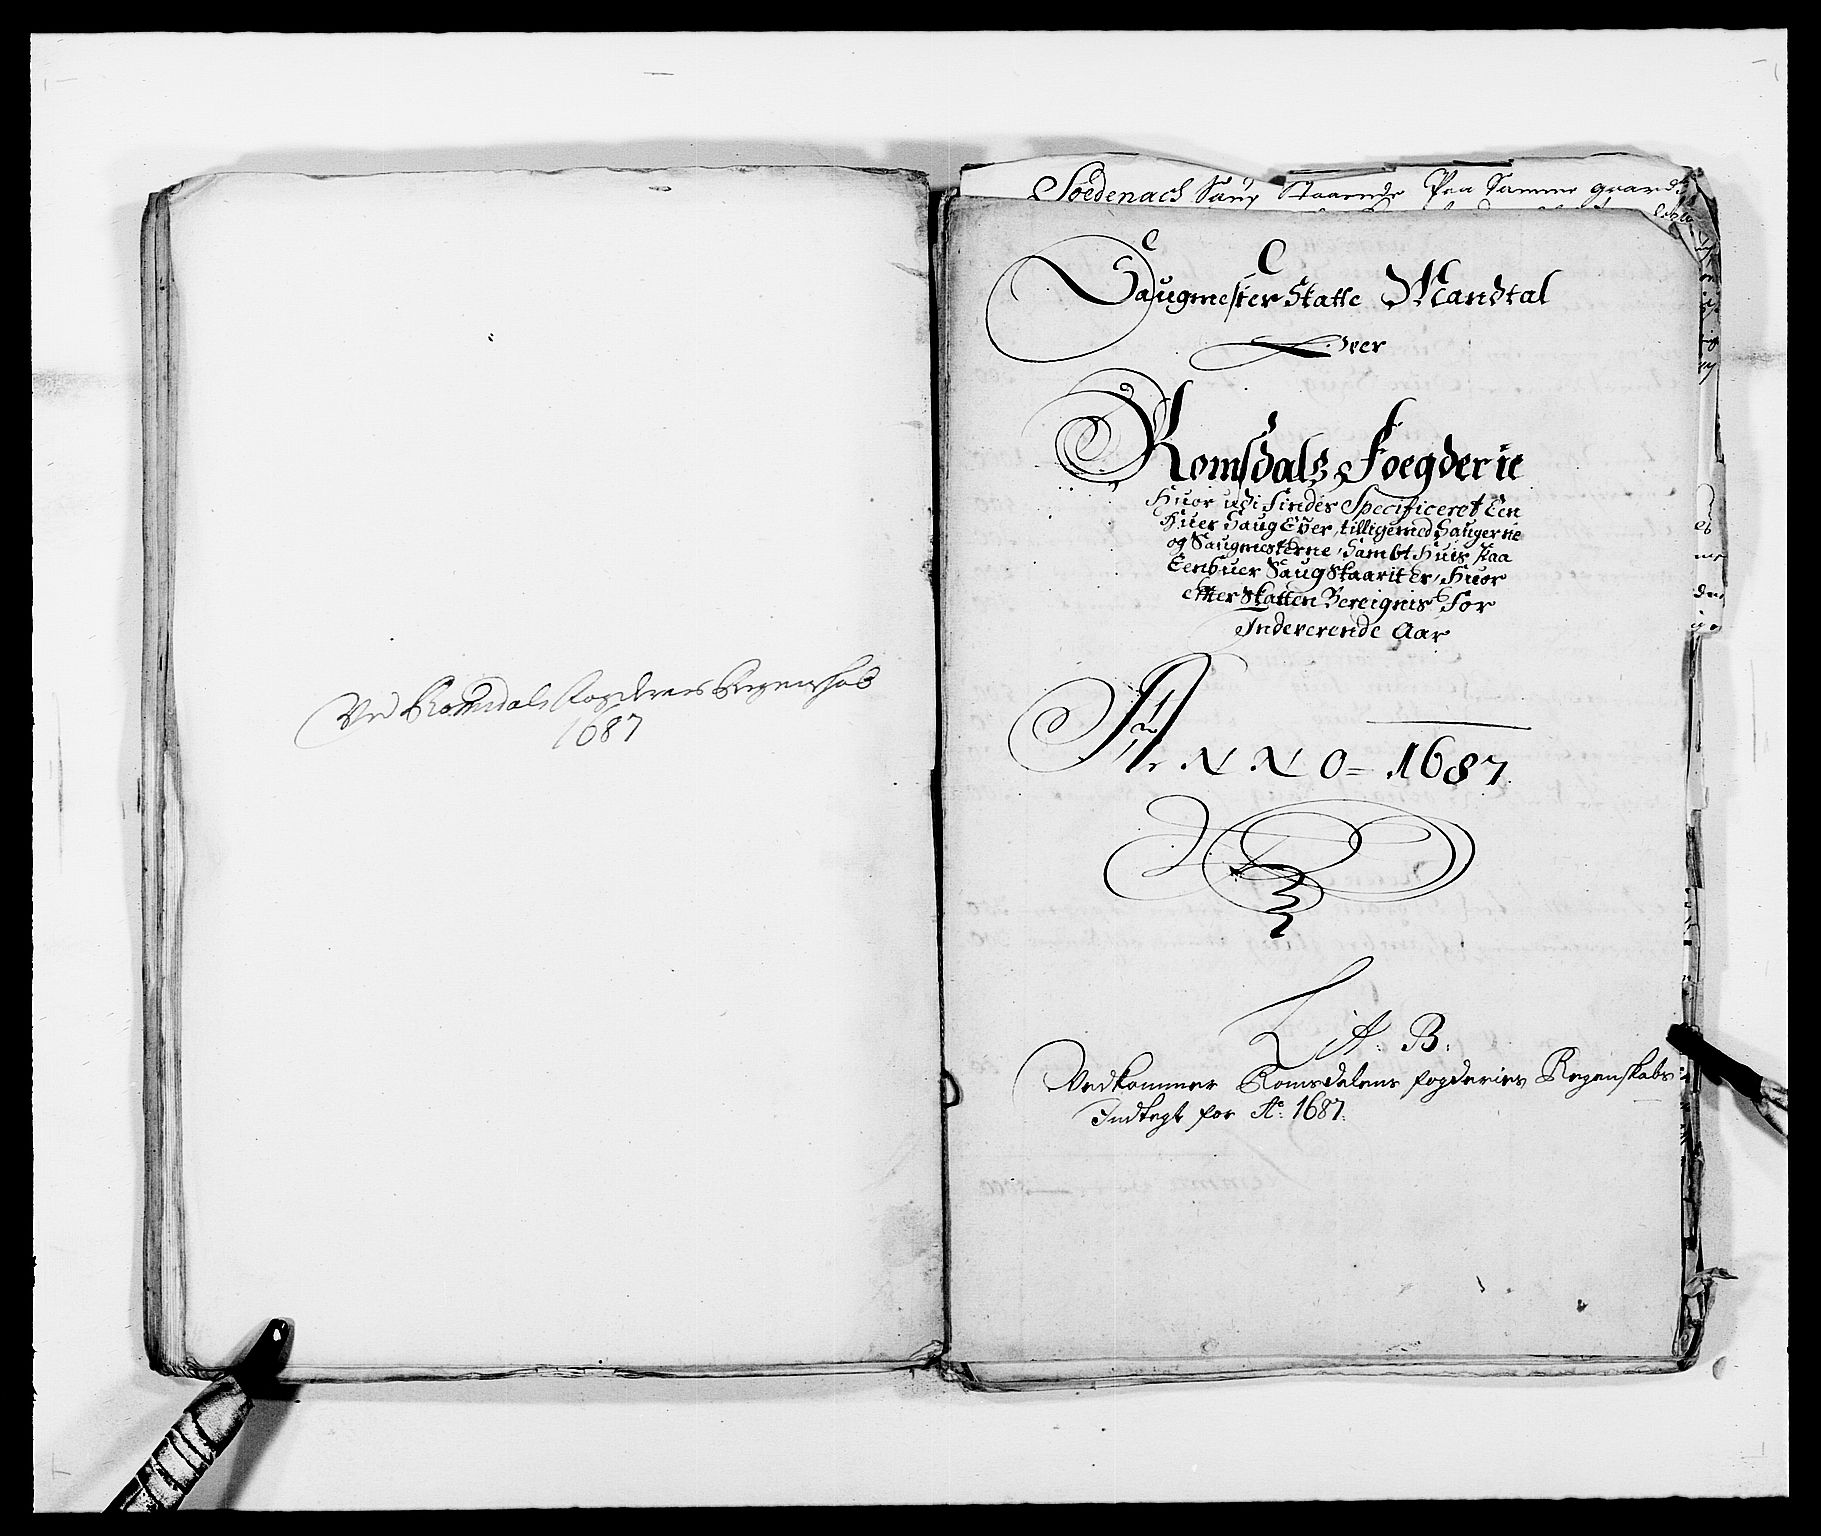 Ved Romsdals fogderies Regenskab
1687
Soedenach Saug Staarende Paa Samme gaard
Saugmester Skatte Mandtal
Over
Romsdalz Foegderie
Huor udi findes Specificeret Een
Huer Saug Eyer, tilligemed Saugerne
og Saugmesterne, Sambt Huis Paa
Eenhuer Saug Skaarit Er, Huor
efter Skatten Bereignis for
Indeverende Aar
ANNO = 1687
Lit. B.
Vedkommer Romsdalens fogderies Regenskabs
Indtegt for Ao: 1687.